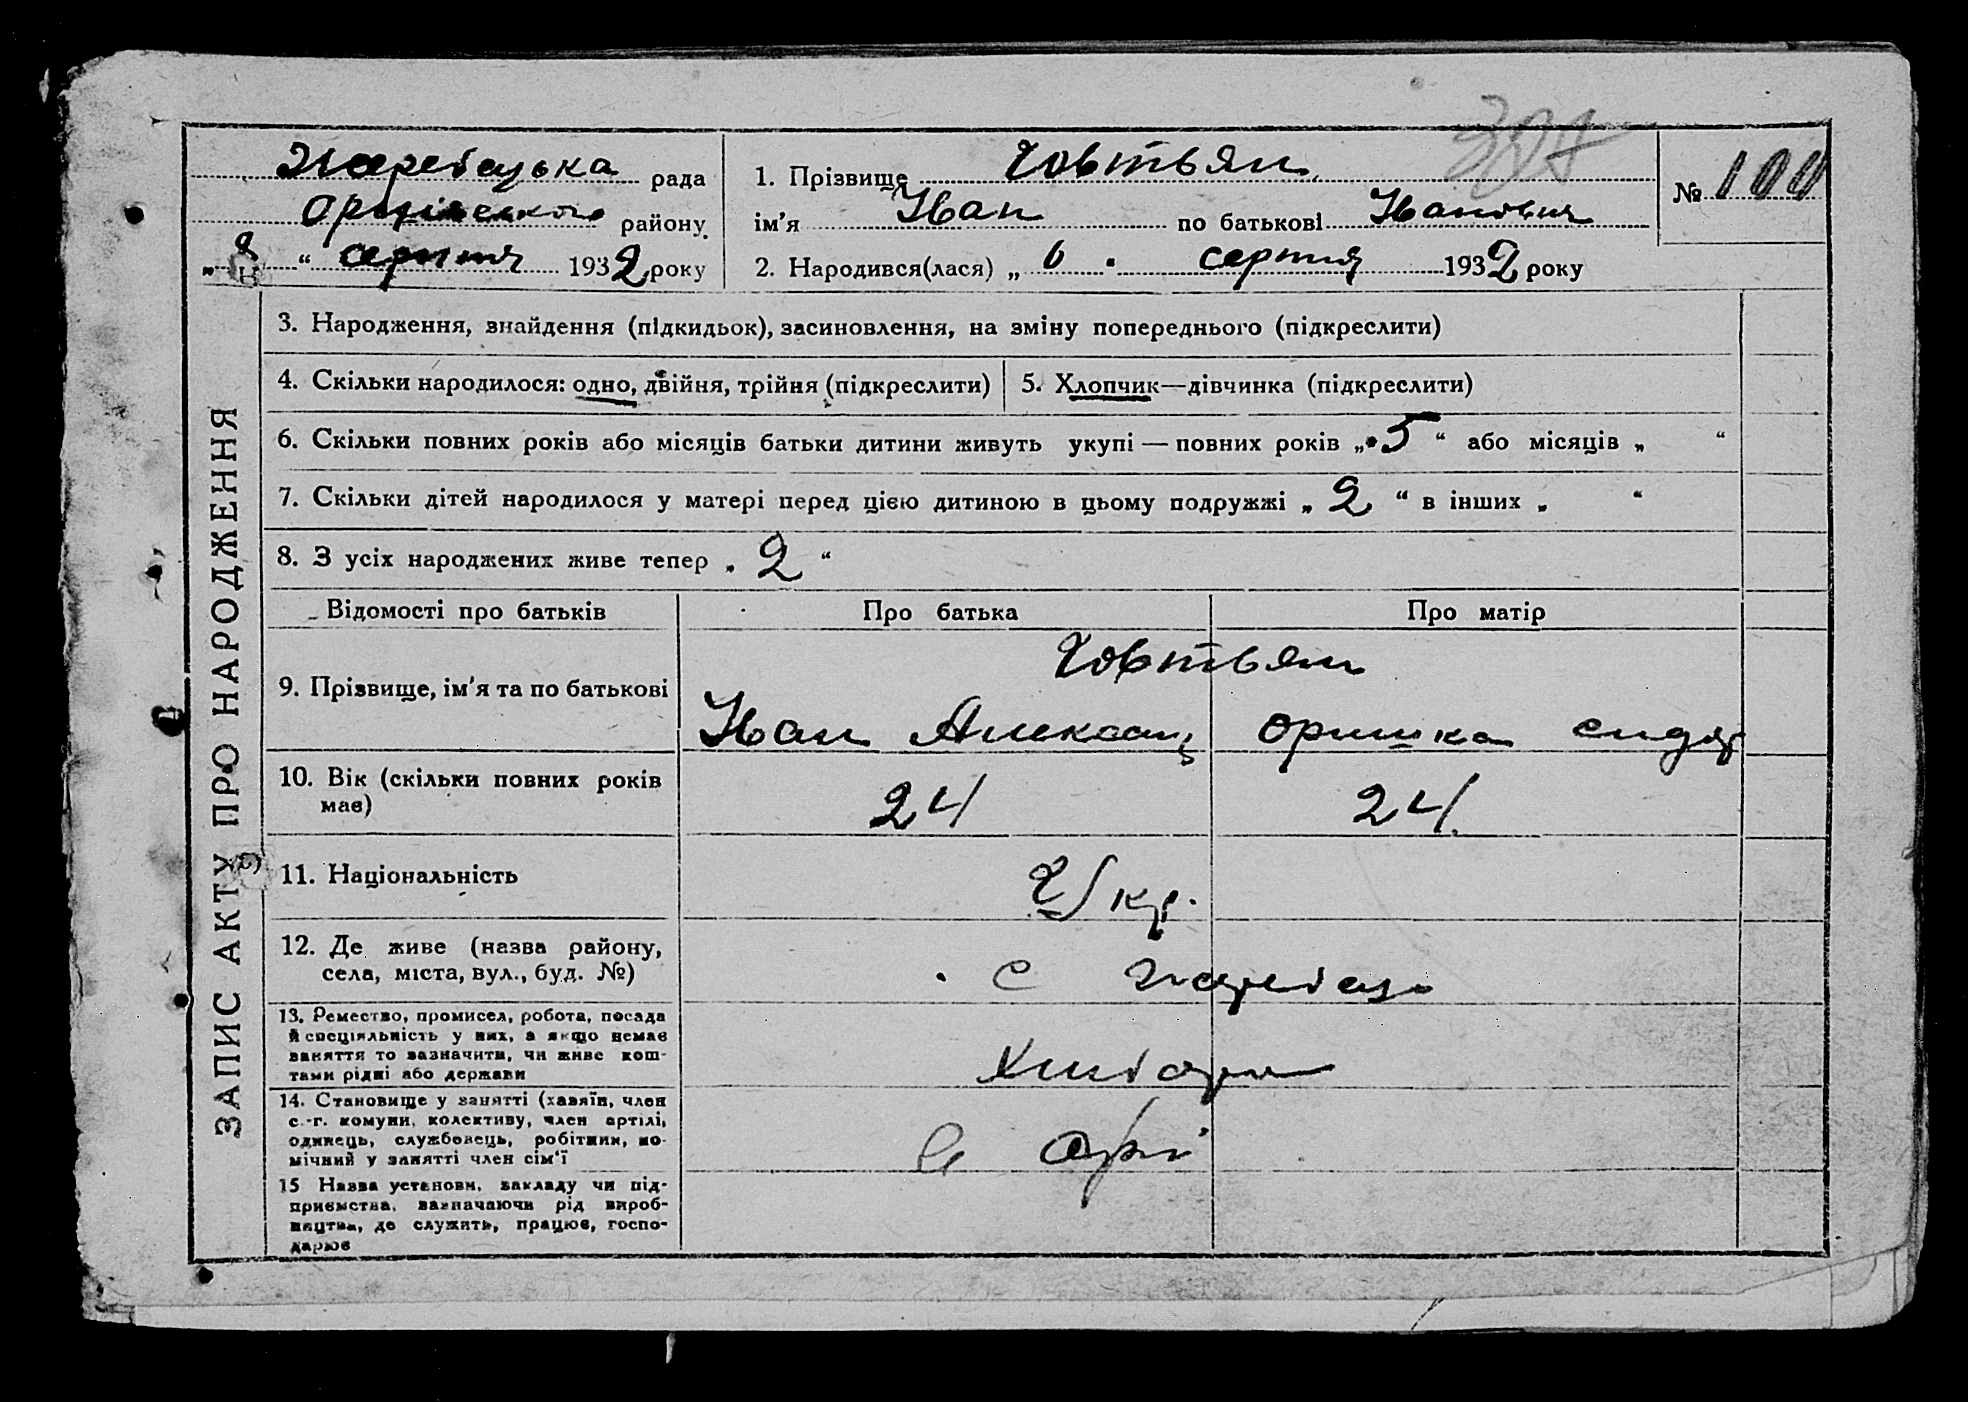 рада
району
"8" серпня 1932 року
1. Прізвище Човтьян
ім'я Иван по батькові Иванович
2. Народився(лася) „ 6 " серпня 1932 року
№ 100
ЗАПИС АКТУ ПРО НАРОДЖЕННЯ
3. Народження, знайдення (підкидьок), засиновлення, на зміну попереднього (підкреслити)
4. Скільки народилося: одно, двійня, трійня (підкреслити)
5. Хлопчик—дівчинка (підкреслити)
6. Скільки повних років або місяців батьки дитини живуть укупі — повних років „ 5 “ або місяців „ “
7. Скільки дітей народилося у матері перед цією дитиною в цьому подружжі „ 2 “ в інших „ “
8. З усіх народжених живе тепер „ 2 “
Відомості про батьків
Про батька
Про матір
9. Прізвище, ім'я та по батькові
Човтьян
Иван
Оришка Сидор
10. Вік (скільки повних років
має)
24
24
11. Національність
Укр.
12. Де живе (назва району,
села, міста, вул., буд. №)
с
13. Ремество, промисел, робота, посада
й спеціяльність у них, а якщо немає
заняття то зазначити, чи живе кош-
тами рідні або держави
14. Становище у занятті (хазяїн, член
с.-г. комуни, колективу, член артілі,
одинець, службовець, робітник, по-
мічний у занятті член сім'ї
15 Назва установи, закладу чи під-
приємства, зазначаючи рід вироб-
ництва, де служить, працює, госпо-
дарює